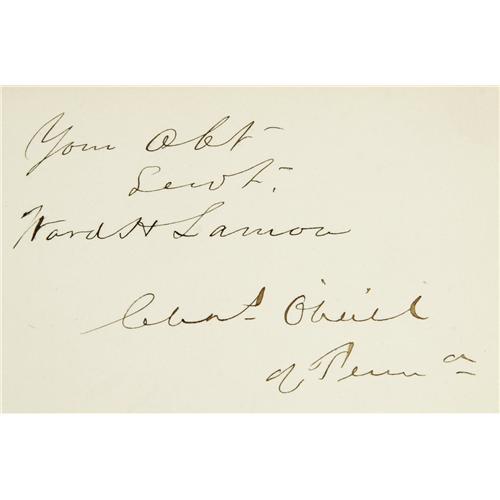 Your Obt
Servt.
Ward H Lamon
Chas. O'Neill
of Penna